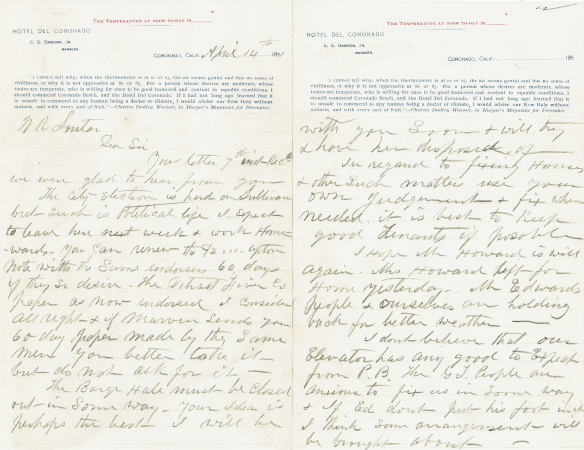 THE TEMPERATURE AT NOON TO-DAY IS
HOTEL DEL CORONADO
E. S. BABCOCK, JR.
MANAGER.
CORONADO, CALIF. April 14th 189
"I cannot tell why, when the thermometer is at 60 or 63, the air seems genial and has no sense of
chilliness, or why it is not oppressive at 80 or 85. For a person whose desires are moderate, whose
tastes are temperate, who is willing for once to be good humored and content in equable conditions, I
should commend Coronado Beach, and the Hotel Del Coronado, if I had not long ago learned that it
is unsafe to commend to any human being a doctor or climate. I would advise our New Italy without
malaria, and with every sort of fruit."—Charles Dudley Warner, in Harper's Magazine for December.
W R
Dear Sir
Your letter 7th inst Recd
we were glad to hear from you
The City Election is hard on Sullivan
but Such is Political life I Expect
to leave here next week & work Home-
wards. You can renew the
Note with the Same endorsers 60 days
if they So desire. The Fire Co
paper as now endorsed I Consider
all right & if Marvin Sends you
60 day paper made by the Same
men you better take it —
but do not ask for it —
The Barge Hale must be Closed
out in Some way. Your Idea is
perhaps the best I will be
THE TEMPERATURE AT NOON TO-DAY IS
HOTEL DEL CORONADO
E. S. BABCOCK, JR.
MANAGER.
CORONADO, CALIF. 189
"I cannot tell why, when the thermometer is at 60 or 63, the air seems genial and has no sense of
chilliness, or why it is not oppressive at 80 or 85. For a person whose desires are moderate, whose
tastes are temperate, who is willing for once to be good humored and content in equable conditions, I
should commend Coronado Beach, and the Hotel Del Coronado, if I had not long ago learned that it
is unsafe to commend to any human being a doctor or climate. I would advise our New Italy without
malaria, and with every sort of fruit."—Charles Dudley Warner, in Harper's Magazine for December.
with you Soon & will try
& have her disposed of —
In regard to fixing Houses
& other Such matters use your
own Judgement & fix when
needed. it is best to Keep
good tenants if possible
I Hope Mr Howard is well
again. Mrs Howard left for
Home yesterday. Mr Edwards
people & ourselves are holding
back for better weather —
I dont believe that our
Elevator has any good to Expect
from P.B. The G.T. People are
anxious to fix us in Some way
& if Ed dont put his foot in it
I think Some arrangement will
be brought about —